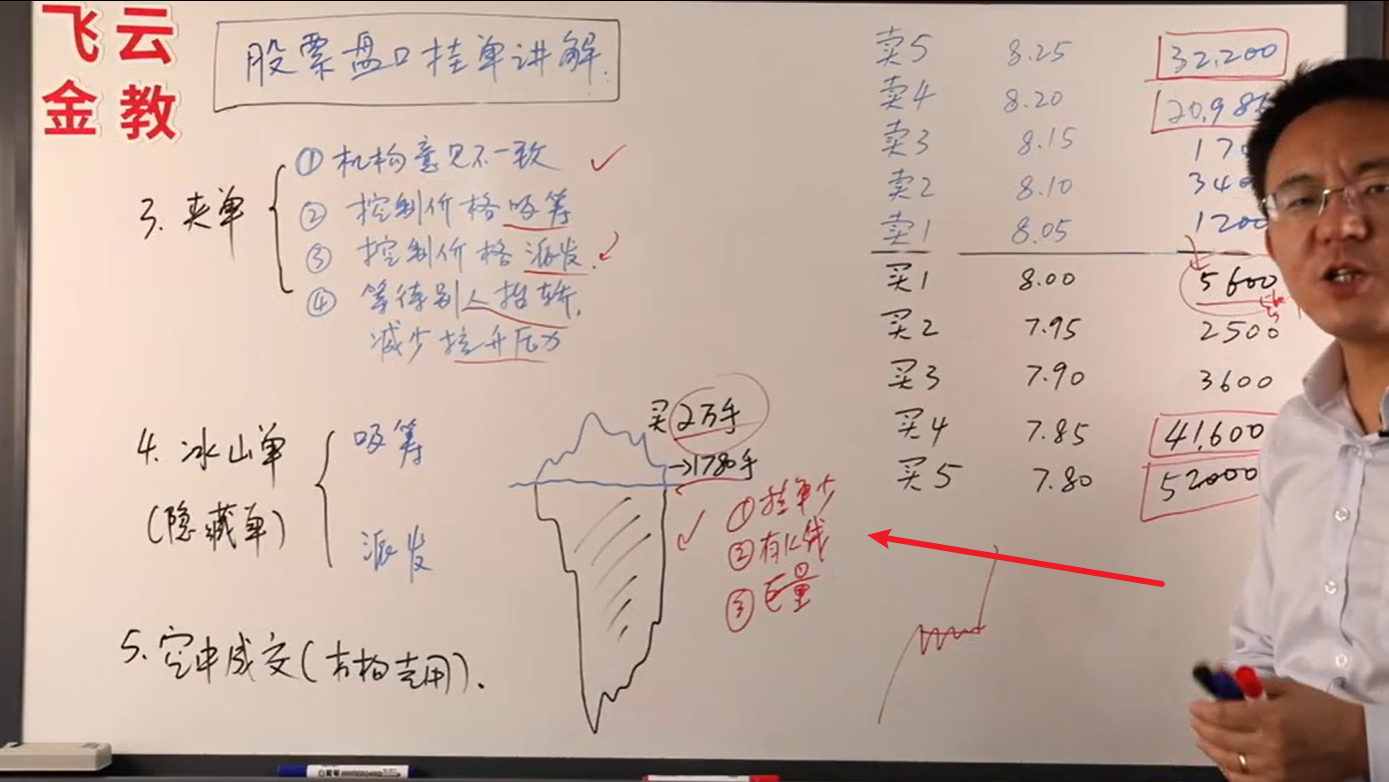 飞云
金教
股票盘口挂单讲解.
3. 夹单
① 机构意见不一致
② 控制价格吸筹
③ 控制价格派发.
④ 等待别人抬轿,
减少拉升压力
4. 冰山单
(隐藏单)
吸筹
派发
买2万手
→1780手
①挂单少
②有K线
③巨量
5. 空中成交(机构专用).
卖5 8.25 32,200
卖4 8.20
卖3 8.15
卖2 8.10
卖1 8.05 1200
买1 8.00 5600
买2 7.95 2500
买3 7.90 3600
买4 7.85 41,600
买5 7.80 52000